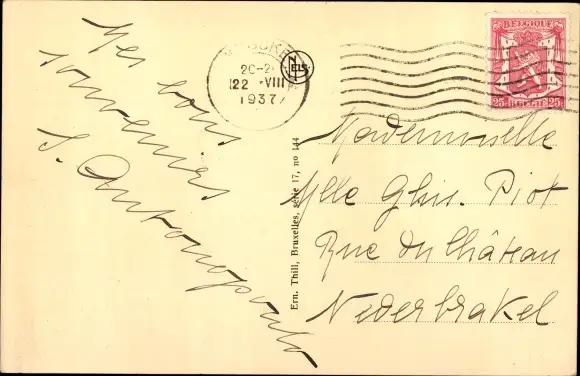 Mes bons
souvenirs
S. Antonopoulo
20-2
22 VIII
1937
NELS
BELGIQUE
25c BELGIË 25c
Ern. Thill, Bruxelles, série 17, no 144
Mademoiselle
Mlle Ghis. Piot
Rue du Château
Nederbrakel